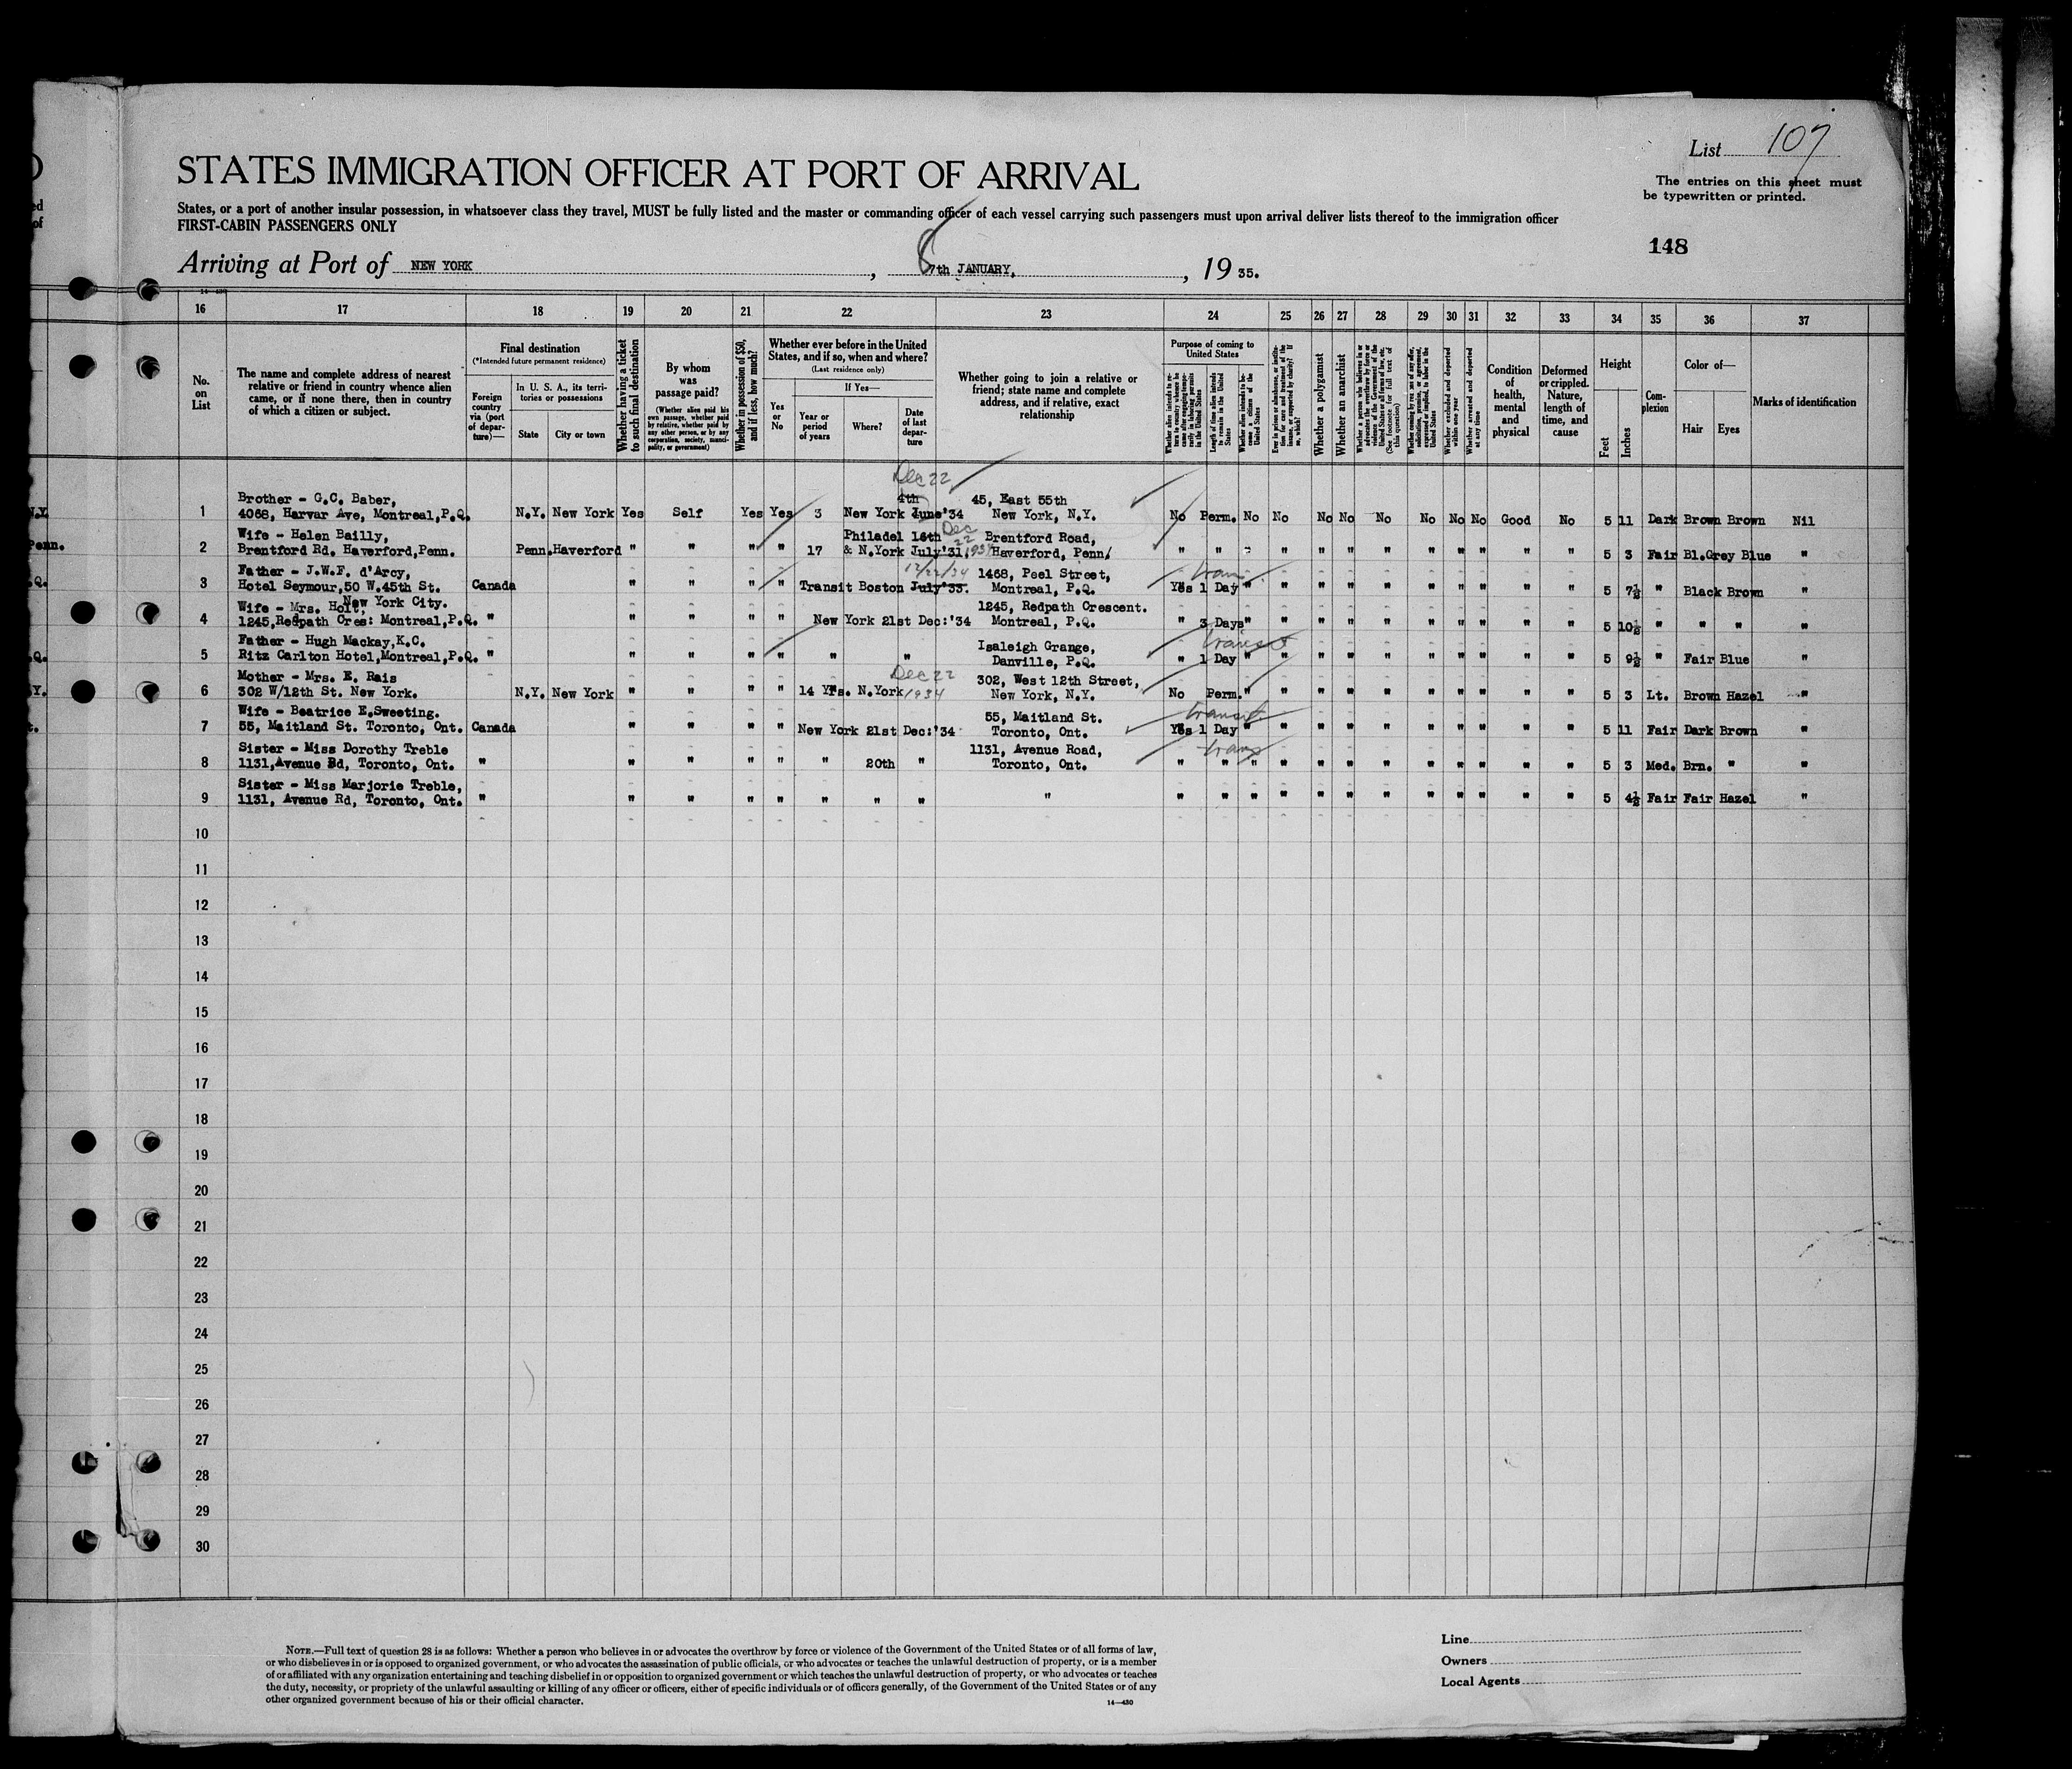 List 107
STATES IMMIGRATION OFFICER AT PORT OF ARRIVAL
The entries on this sheet must
be typewritten or printed.
States, or a port of another insular possession, in whatsoever class they travel, MUST be fully listed and the master or commanding officer of each vessel carrying such passengers must upon arrival deliver lists thereof to the immigration officer
FIRST-CABIN PASSENGERS ONLY
148
Arriving at Port of NEW YORK, 8 7th JANUARY, 19 35.
16 17 18 19 20 21 22 23 24 25 26 27 28 29 30 31 32 33 34 35 36 37
No. on List
The name and complete address of nearest
relative or friend in country whence alien
came, or if none there, then in country
of which a citizen or subject.
Final destination
(*Intended future permanent residence)
Foreign country via (port of departure)—
In U. S. A., its territories or possessions
State
City or town
Whether having a ticket to such final destination
By whom was passage paid?
(Whether alien paid his own passage, whether paid by relative, whether paid by any other person, or by any corporation, society, municipality, or government)
Whether in possession of $50, and if less, how much?
Whether ever before in the United States, and if so, when and where?
(Last residence only)
Yes or No
If Yes—
Year or period of years
Where?
Date of last departure
Whether going to join a relative or
friend; state name and complete
address, and if relative, exact
relationship
Purpose of coming to United States
Length of time alien intends to remain in the United States
Whether alien intends to become a citizen of the United States
Whether a polygamist
Whether an anarchist
Whether excluded and deported within one year
Whether arrested and deported at any time
Condition of health, mental and physical
Deformed or crippled. Nature, length of time, and cause
Height
Feet
Inches
Complexion
Color of—
Hair
Eyes
Marks of identification
Dec 22
Brother - G.C. Baber, 4th 45, East 55th
1 4068, Harvar Ave, Montreal,P.Q. N.Y. New York Yes Self Yes Yes 3 New York June'34 New York, N.Y. No Perm. No No No No No No No No Good No 5 11 Dark Brown Brown Nil
Wife - Helen Bailly, Philadel 16th Dec 22 Brentford Road,
2 Brentford Rd. Haverford,Penn. Penn.Haverford " " " " 17 & N.York July'31, 1934 Haverford, Penn/ " " " " " " " " " " " " 5 3 Fair Bl.Grey Blue "
Father - J.W.F. d'Arcy, 12/22/34 1468, Peel Street, trans
3 Hotel Seymour,50 W.45th St. Canada " " " " Transit Boston July'33. Montreal, P.Q. Yes 1 Day " " " " " " " " " " 5 7½ " Black Brown "
New York City.
Wife - Mrs. Holt, 1245, Redpath Crescent.
4 1245,Redpath Cres: Montreal,P.Q. " " " " " New York 21st Dec:'34 Montreal, P.Q. " 3 Days " " " " " " " " " " 5 10½ " " " "
Father - Hugh Mackay,K.C. Isaleigh Grange, transit
5 Ritz Carlton Hotel,Montreal,P.Q. " " " " " " " Danville, P.Q. " 1 Day " " " " " " " " " " 5 9½ " Fair Blue "
Mother - Mrs. E. Rais Dec 22 302, West 12th Street,
6 302 W/12th St. New York. N.Y. New York " " " " 14 Yrs. N.York 1934 New York, N.Y. No Perm. " " " " " " " " " " 5 3 Lt. Brown Hazel "
Wife - Beatrice E.Sweeting. 55, Maitland St. transit
7 55, Maitland St. Toronto, Ont. Canada " " " " New York 21st Dec:'34 Toronto, Ont. Yes 1 Day " " " " " " " " " " 5 11 Fair Dark Brown "
Sister - Miss Dorothy Treble 1131, Avenue Road, trans
8 1131,Avenue Rd, Toronto, Ont. " " " " " " 20th " Toronto, Ont. " " " " " " " " " " " " 5 3 Med. Brn. " "
Sister - Miss Marjorie Treble,
9 1131, Avenue Rd, Toronto, Ont. " " " " " " " " " " " " " " " " " " " " " 5 4½ Fair Fair Hazel "
10
11
12
13
14
15
16
17
18
19
20
21
22
23
24
25
26
27
28
29
30
NOTE.—Full text of question 28 is as follows: Whether a person who believes in or advocates the overthrow by force or violence of the Government of the United States or of all forms of law,
or who disbelieves in or is opposed to organized government, or who advocates the assassination of public officials, or who advocates or teaches the unlawful destruction of property, or is a member
of or affiliated with any organization entertaining and teaching disbelief in or opposition to organized government or which teaches the unlawful destruction of property, or who advocates or teaches
the duty, necessity, or propriety of the unlawful assaulting or killing of any officer or officers, either of specific individuals or of officers generally, of the Government of the United States or of any
other organized government because of his or their official character.
14—430
Line
Owners
Local Agents